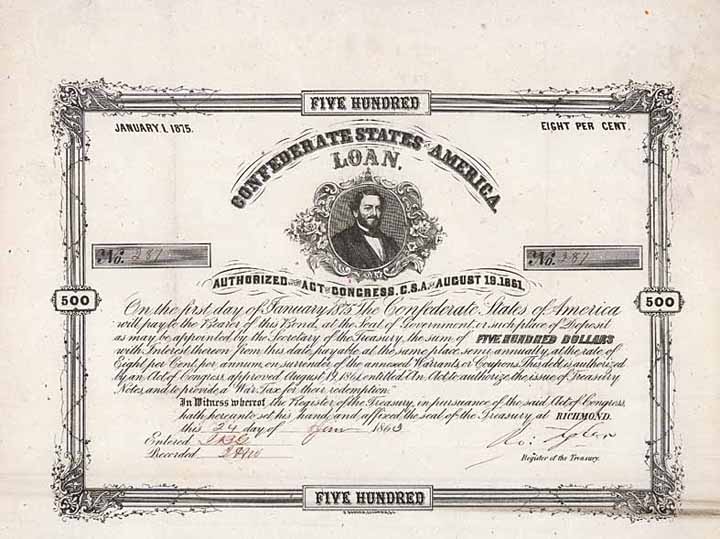 FIVE HUNDRED
JANUARY. 1. 1875.
EIGHT PER CENT.
CONFEDERATE STATES OF AMERICA.
LOAN,
No. 287
No. 287
AUTHORIZED BY ACT OF CONGRESS, C.S.A. OF AUGUST 19.1861.
500
500
On the first day of January 1875 The Confederate States of America
will pay to the Bearer of this Bond, at the Seat of Government, or such place of Deposit
as may be appointed by the Secretary of the Treasury, the sum of FIVE HUNDRED DOLLARS
with Interest thereon from this date, payable at the same place semi-annually, at the rate of
Eight per Cent, per annum, on surrender of the annexed Warrants, or Coupons. This debt is authorized
by an Act of Congress, approved August 19, 1861, entitled "An Act to authorize the issue of Treasury
Notes, and to provide a War Tax for their redemption."
In Witness whereof the Register of the Treasury, in pursuance of the said Act of Congress,
hath hereunto set his hand, and affixed the seal of the Treasury at RICHMOND.
this 24 day of Jan 1863
Entered
Recorded
Ro: Tyler
Register of the Treasury.
FIVE HUNDRED